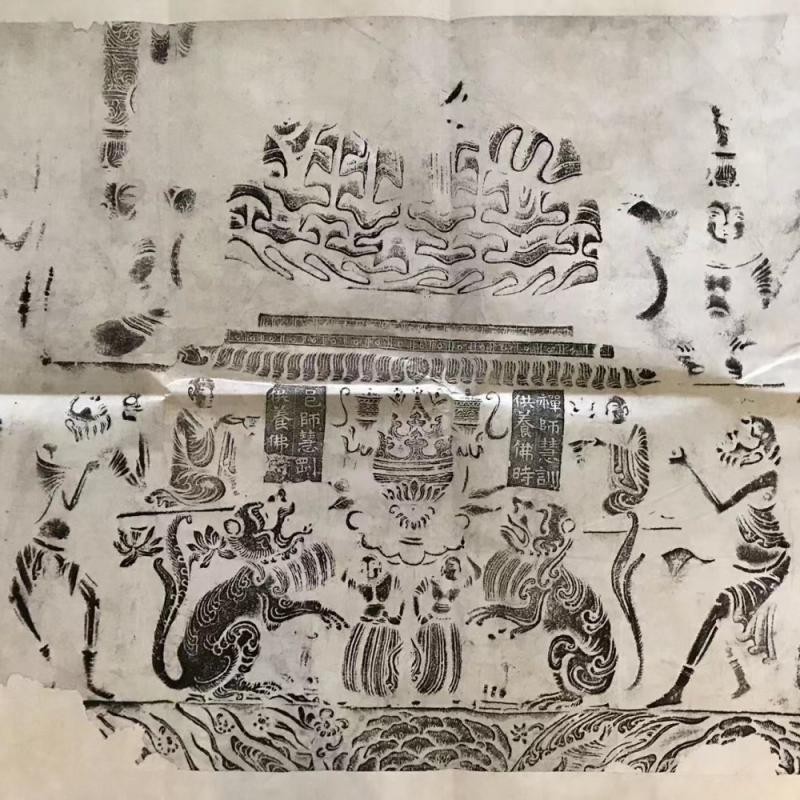 禪師慧訓
供養佛時
邑師慧
供養佛時